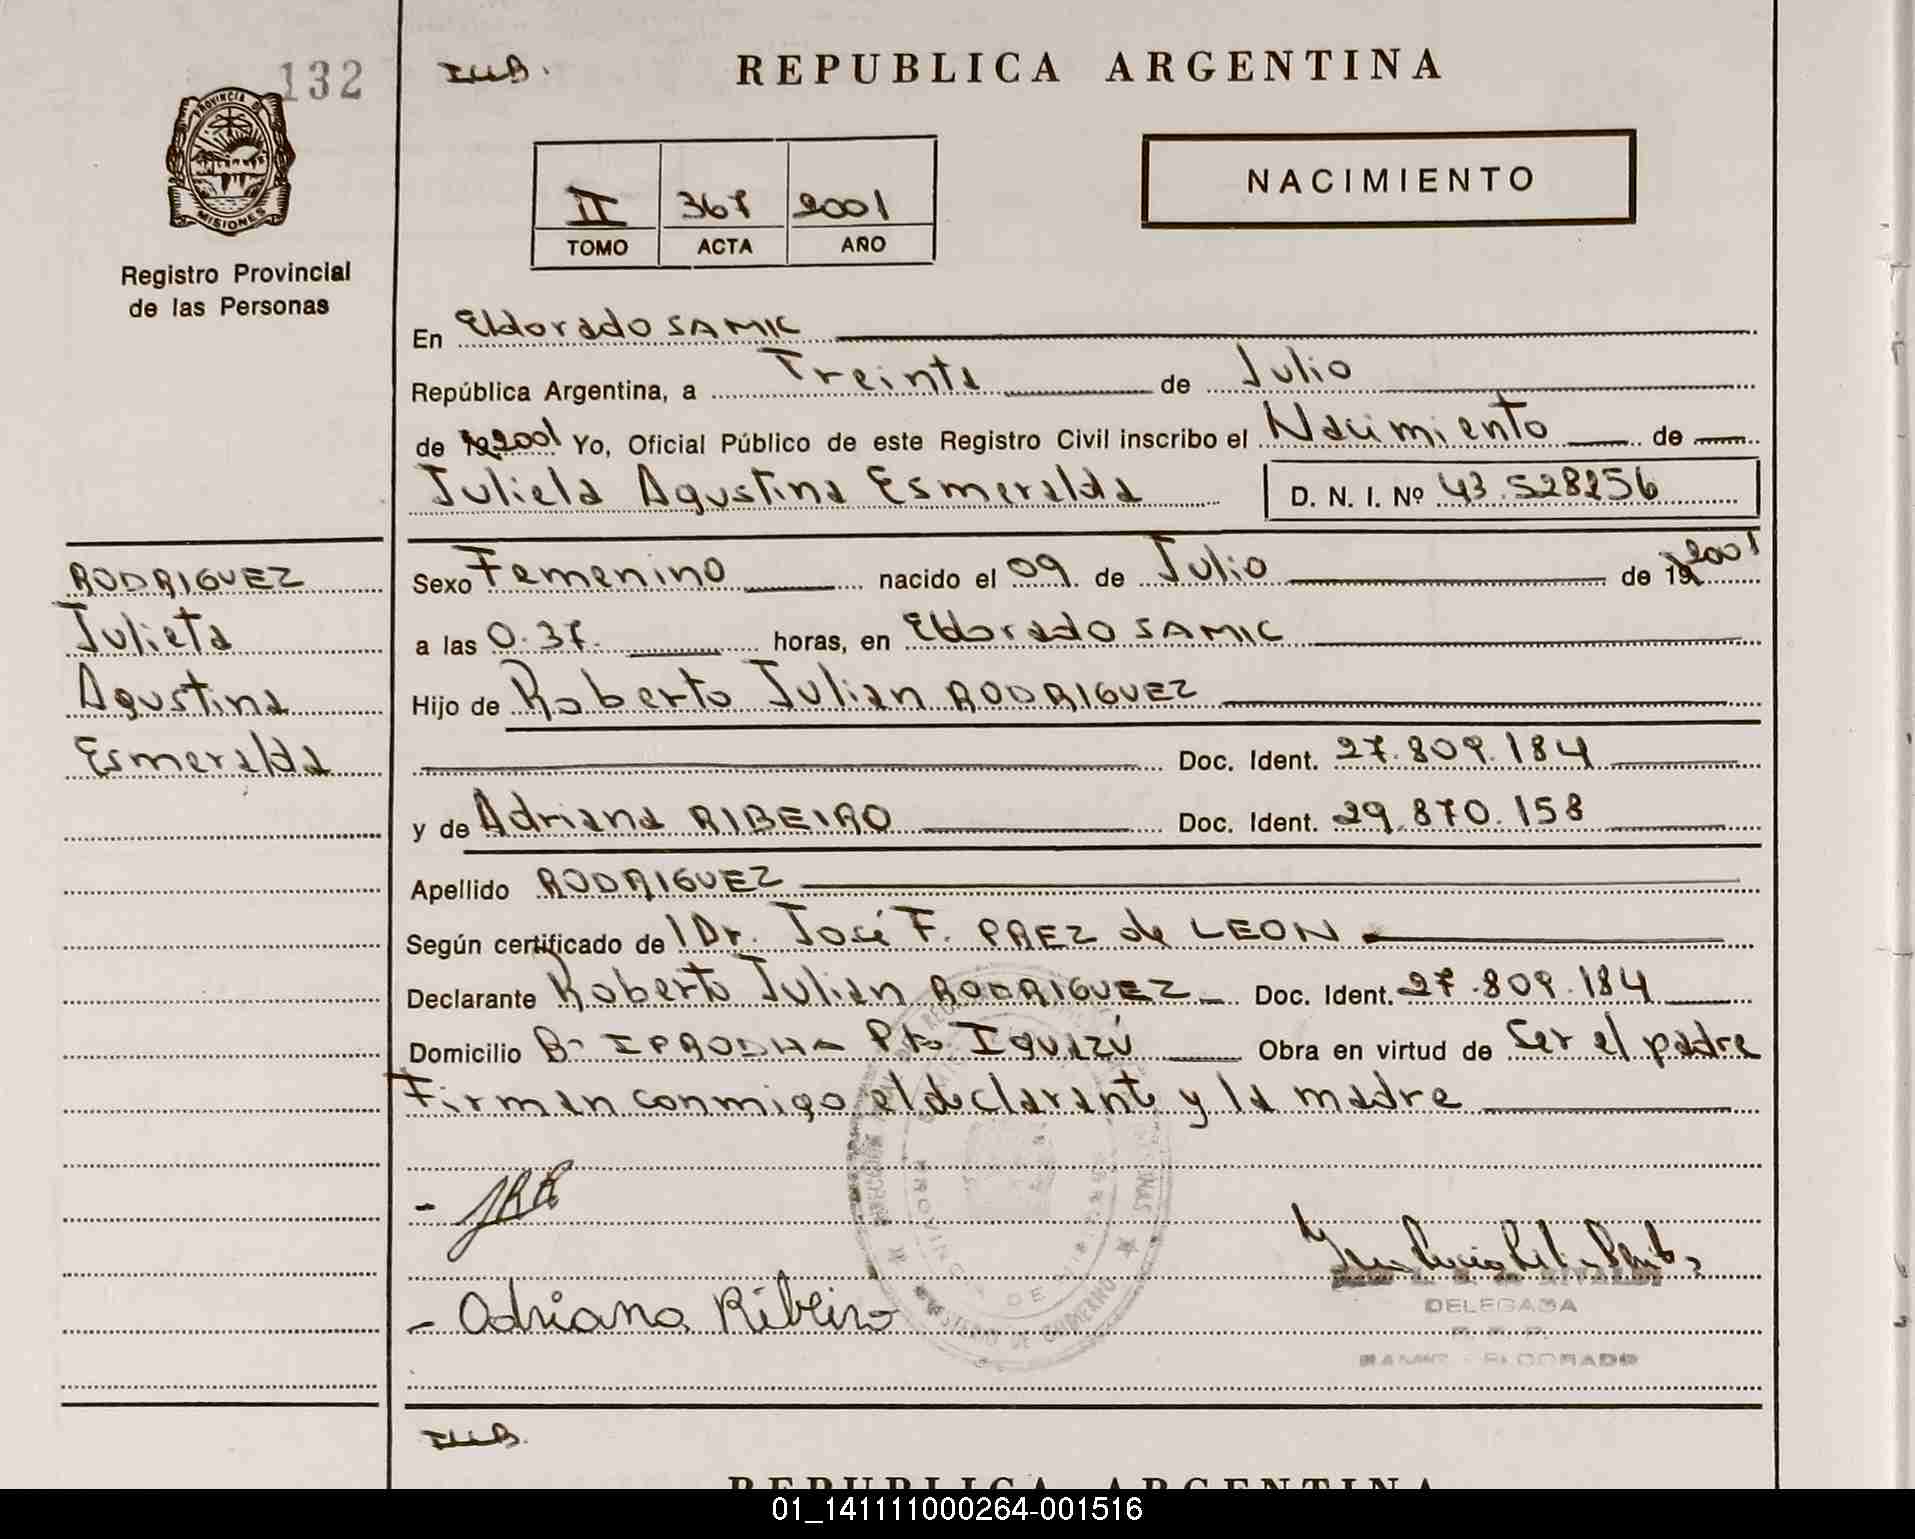 132
REPUBLICA ARGENTINA
PROVINCIA DE
MISIONES
NACIMIENTO
II 367 2001
TOMO ACTA AÑO
Registro Provincial
de las Personas
En Eldorado SAMIC
República Argentina, a Treinta de Julio
de 2001 Yo, Oficial Público de este Registro Civil inscribo el Nacimiento de
Julieta Agustina Esmeralda D. N. I. Nº 43.528256
RODRIGUEZ
Julieta
Agustina
Esmeralda
Sexo Femenino nacido el 09 de Julio de 19 2001
a las 0.37. horas, en Eldorado SAMIC
Hijo de Roberto Julian RODRIGUEZ
Doc. Ident. 27.809.184
y de Adriana RIBEIRO Doc. Ident. 29.870.158
Apellido RODRIGUEZ
Según certificado de l Dr. José F. PAEZ de LEON
Declarante Roberto Julian RODRIGUEZ Doc. Ident. 27.809.184
Domicilio Bº IPRODHA Pto Iguazú Obra en virtud de Ser el padre
Firman conmigo el declarante y la madre
- Adriana Ribeiro
DELEGADA
SAMIC - ELDORADO
REPUBLICA ARGENTINA
01_141111000264-001516